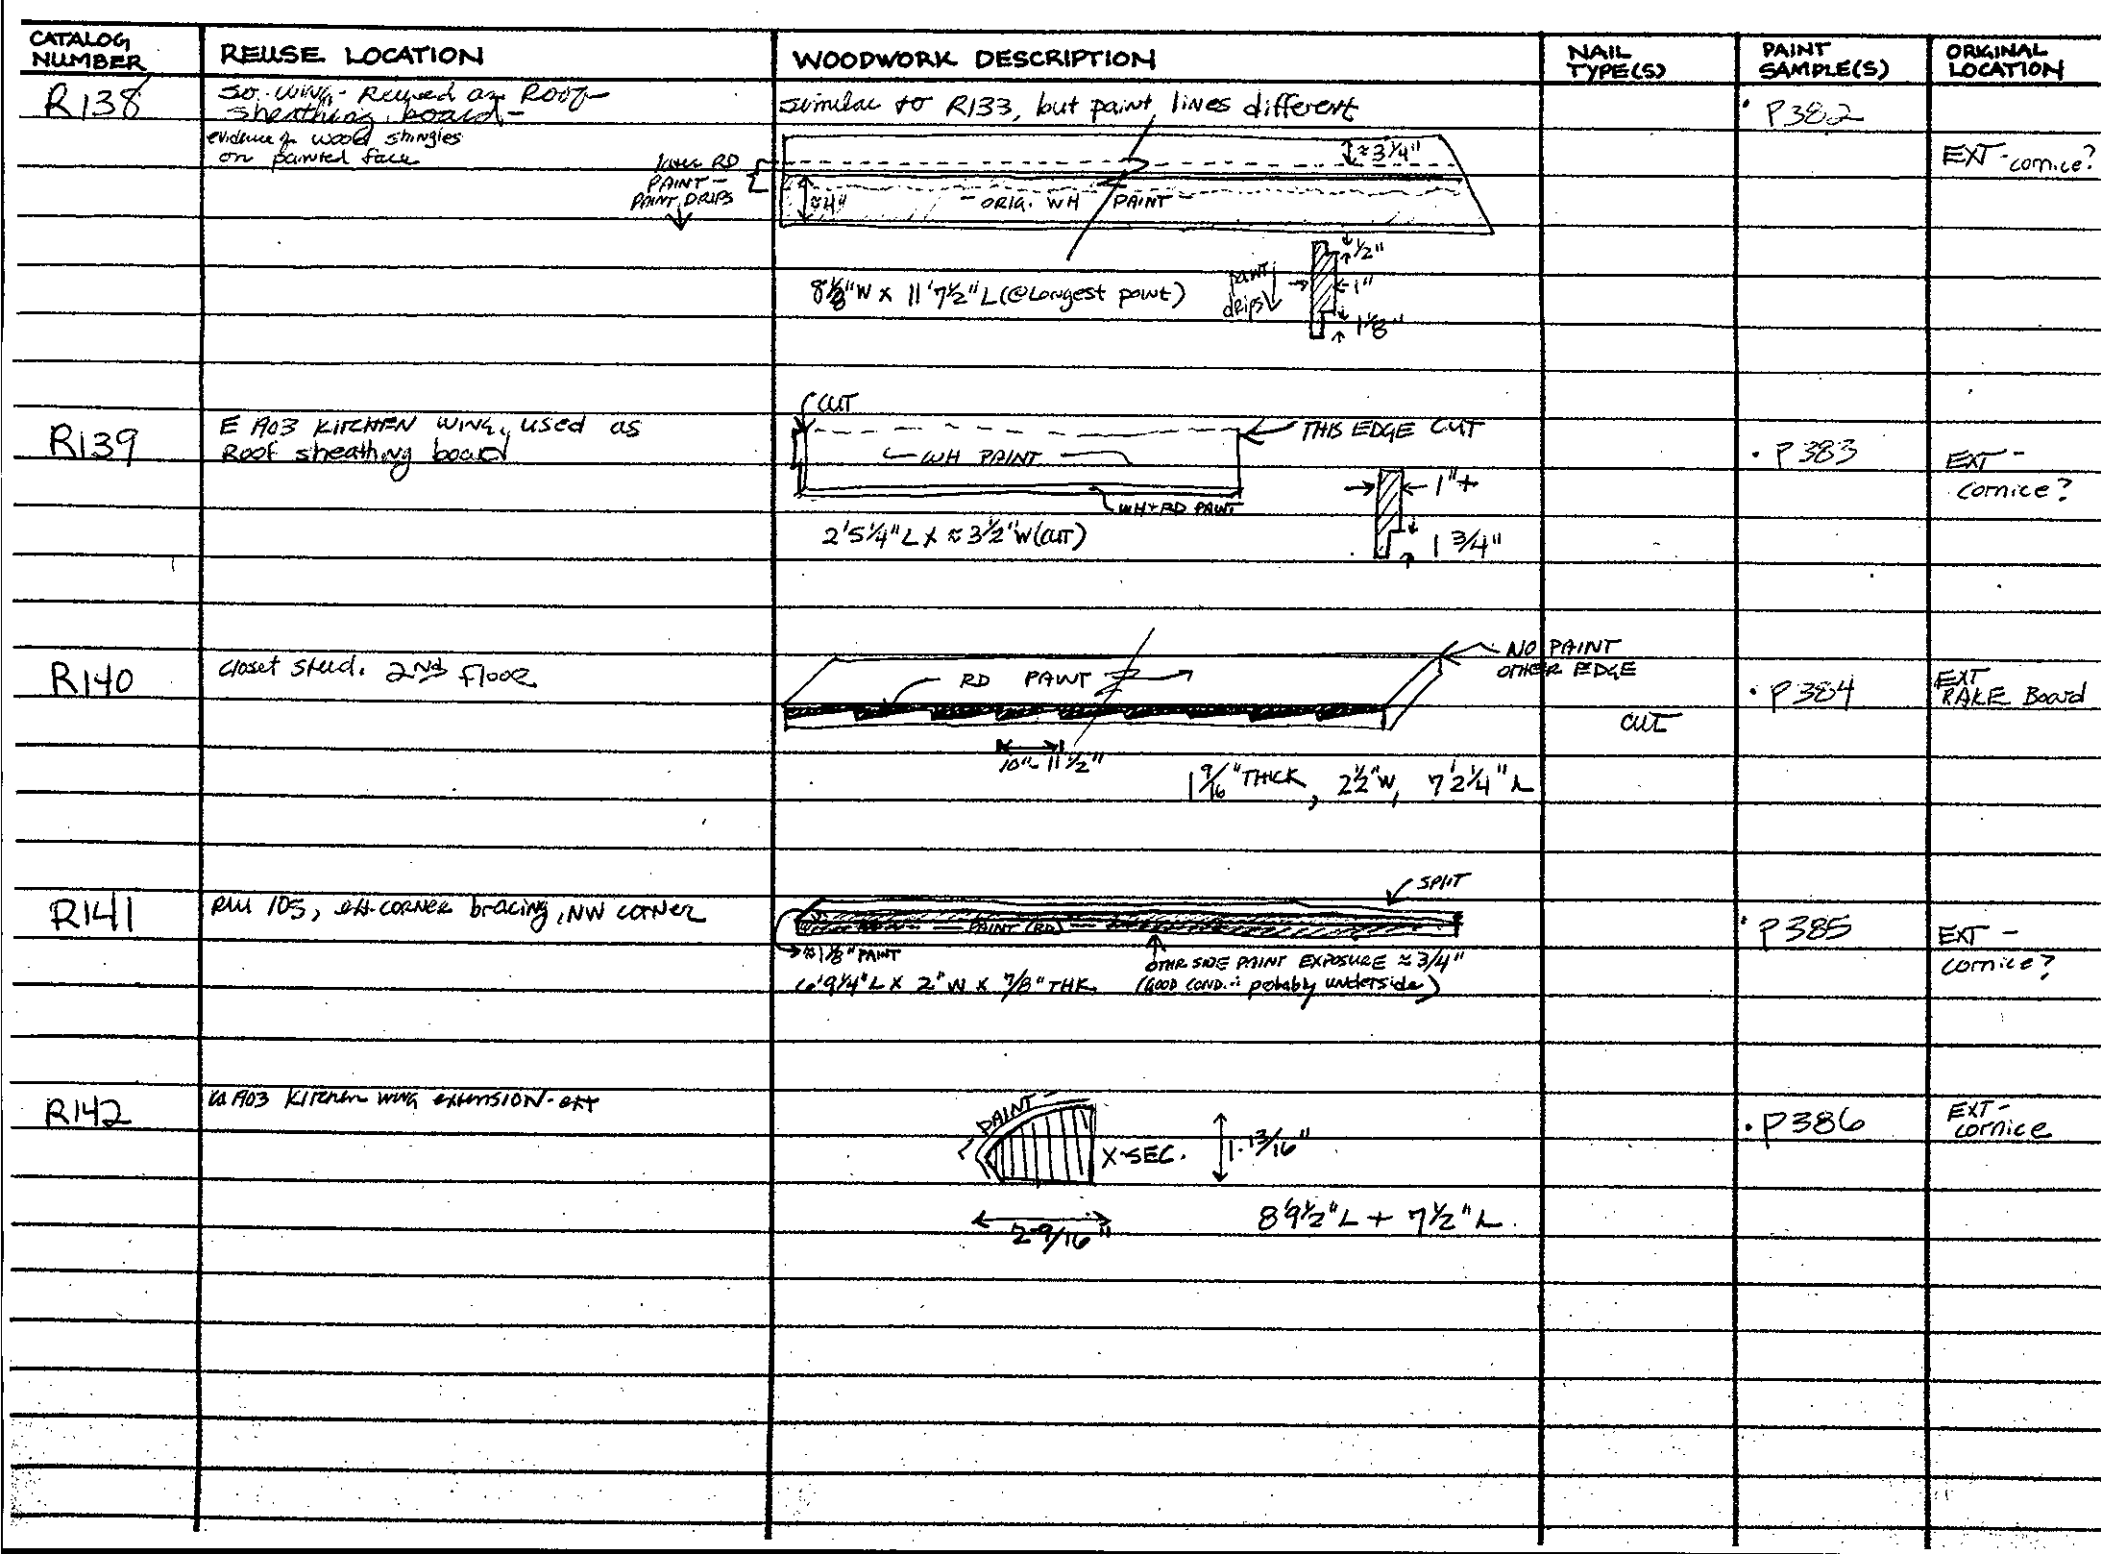 CATALOG NUMBER
REUSE LOCATION
WOODWORK DESCRIPTION
NAIL TYPE(S)
PAINT SAMPLE(S)
ORIGINAL LOCATION
R138
So. wing - Reused as Roof
sheathing board -
evidence of wood shingles
on painted face
similar to R133, but paint lines different
later RD
PAINT -
PAINT DRIPS
≈ 3 1/4"
≈4"
- ORIG. WH PAINT -
8 1/8" W x 11' 7 1/2" L (@ Longest point)
paint
drips
1/2"
1"
1 1/8"
P382
EXT - cornice?
R139
E 1903 KITCHEN WING, used as
Roof sheathing board
CUT
THIS EDGE CUT
WH PAINT
WH + RD PAINT
2' 5 1/4" L x ≈ 3 1/2" W (CUT)
1" +
1 3/4"
P383
EXT -
cornice?
R140
closet stud. 2nd floor
NO PAINT
OTHER EDGE
RD PAINT
10" - 11 1/2"
1 9/16" THICK, 2 1/2" W, 7' 2 1/4" L
CUT
P384
EXT
RAKE Board
R141
RM 105, CORNER bracing, NW CORNER
SPLIT
PAINT (RD)
≈ 1 1/8" PAINT
OTHR SIDE PAINT EXPOSURE ≈ 3/4"
6' 9 1/4" L x 2" W x 7/8" THK.
(GOOD COND. ∴ probably underside)
P385
EXT -
cornice?
R142
1903 Kitchen wing extension - ext
PAINT
X-SEC.
1-13/16"
2-9/16"
8' 9 1/2" L + 7 1/2" L.
P386
EXT -
cornice